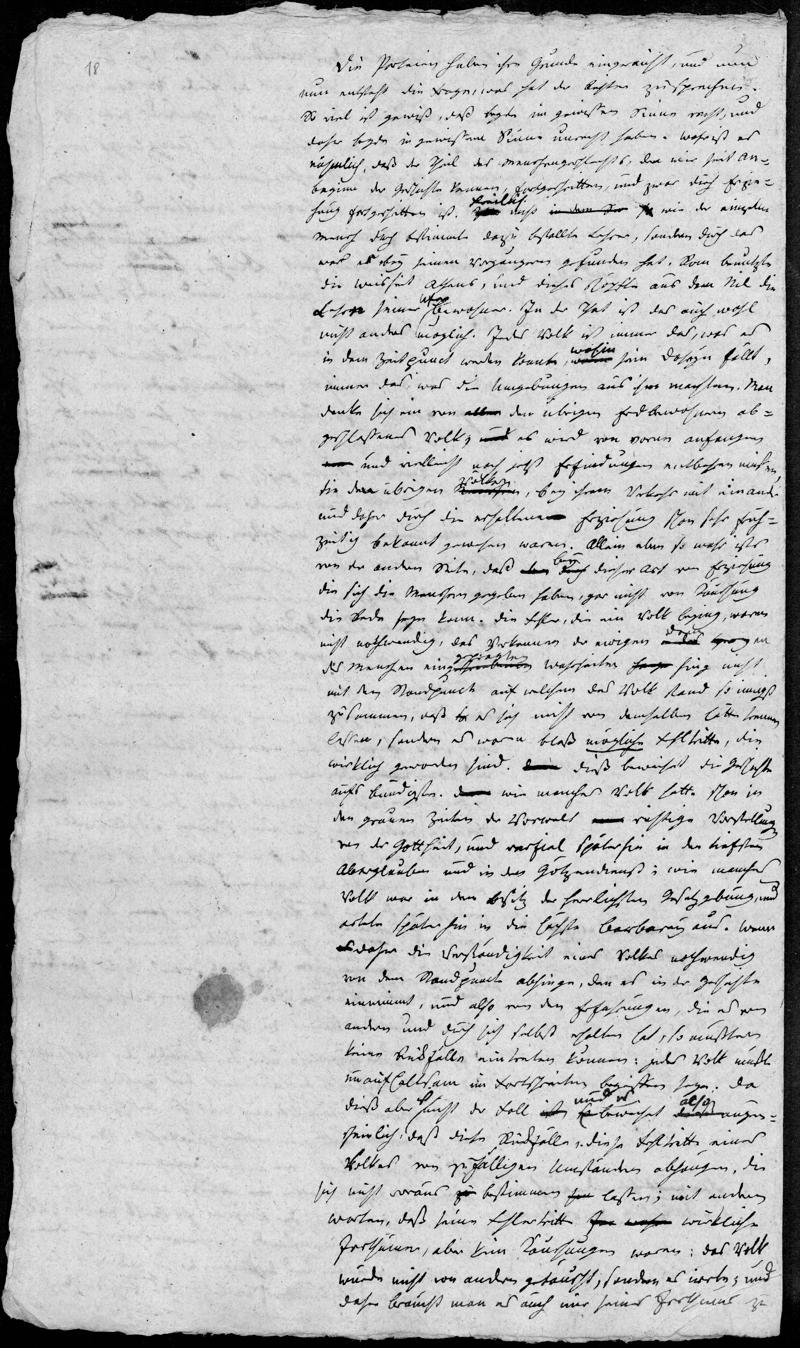 18
Die Parteien haben ihre Gründe eingereicht, und nun
nun entsteht die Frage, was hat der Richter zu sprechen.
So viel ist gewiß, daß beyde in gewissem Sinne recht, und
daher beyde in gewissem Sinne unrecht haben. Wahr ist es
nähmlich, daß der Theil des Menschengeschlechts, den wir seit An-
beginn der Geschichte kennen, fortgeschritten, und zwar durch Erzie-
hung fortgeschritten ist. freilich nicht in dem Sin wie der einzelne
Mensch durch bestimmte dazu bestellte Lehrer, sondern durch das
was es bey seinen Vorgängern gefunden hat. Rom benutzte
die Weisheit Athens, und dieses schöpfte aus dem Nil die
Lehren seiner Uferbewohner. In der That ist das auch wohl
nicht anders möglich. Jedes Volk ist immer das, was es
in dem Zeitpunct werden konnte, wohin sein Daseyn fällt,
immer das, was die Umgebungen aus ihm machten. Man
denke sich ein von allen den übrigen Erdbewohnern ab-
geschlossenes Volk, und es wird von vorne anfangen
und vielleicht noch jetzt Erfindungen entbehren müssen,
die den übrigen Völkern, bey ihrem Verkehr mit einander
und daher durch die erhaltene Erziehung schon sehr früh-
zeitig bekannt gewesen waren. Allein eben so wahr ist es
von der andern Seite, daß bey dieser Art von Erziehung
die sich die Menschen gegeben haben, gar nicht von Täuschung
die Rede seyn kann. Die Fehler, die ein Volk beging, waren
nicht nothwendig, das Verkennen der ewigen
des Menschen eingeprägten Wahrheiten hing nicht
mit dem Standpunct auf welchem das Volk stand so innigst
zusammen, daß es sich nicht von demselben hätte trennen
lassen, sondern es waren bloß mögliche Fehltritte, die
wirklich geworden sind. dieß beweiset die Geschichte
aufs bündigste. wie manches Volk hatte schon in
den grauen Zeiten der Vorwelt richtige Vorstellungen
von der Gottheit, und verfiel späterhin in den tiefsten
Aberglauben und in den Götzendienst; wie manches
Volk war in dem Besitz der herrlichsten Gesetzgebung, und
artete späterhin in die höchste Barbarey aus. Wenn
daher die Verständigkeit eines Volkes nothwendig
von dem Standpuncte abhinge, den es in der Geschichte
einnimmt, und also von den Erfahrungen, die es von
andern und durch sich selbst erhalten hat, so müßten
keine Rückfälle eintreten können: jedes Volk müßte
unaufhaltsam im Fortschreiten begriffen seyn. Da
dieß aber nicht der Fall ist und es beweiset also augen-
scheinlich, daß diese Rückfälle, diese Fehltritte eines
Volkes von zufälligen Umständen abhängen, die
sich nicht voraus bestimmen lassen; mit andern
Worten, daß seine Fehlertritte wirkliche
Irrthümer, aber keine Täuschungen waren: das Volk
wurde nicht von andern getäuscht, sondern es irrte; und
daher braucht man es auch nur seines Irrthums zu